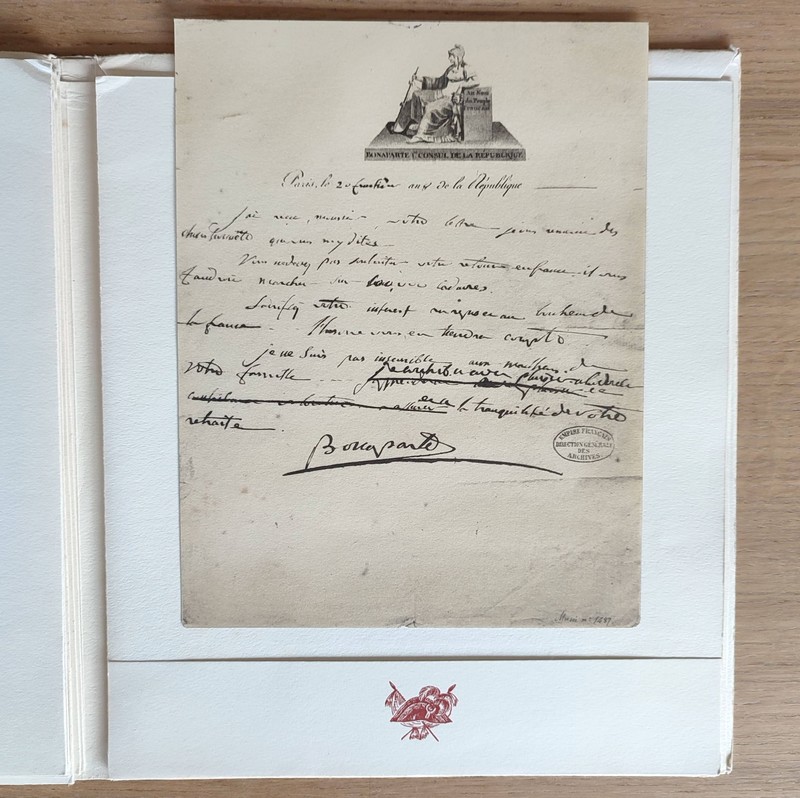 Au Nom
du Peuple
Français
BONAPARTE 1er CONSUL DE LA REPUBLIQUE.
Paris, le 20 an 8 de la République
J'ai reçu, monsieur votre lettre je vous remercie des
choses que vous my dites
Vous ne devez pas souhaiter votre retour en france il vous
faudroit marcher sur cadavres.
Sacrifiez votre interest au repos et au bonheur de
la france L'histoire vous en tiendra compte
je ne suis pas insensible aux malheurs de
votre famille
et a la tranquilité de votre
retraite
Bonaparte
EMPIRE FRANÇAIS
DIRECTION GENERALE
DES
ARCHIVES